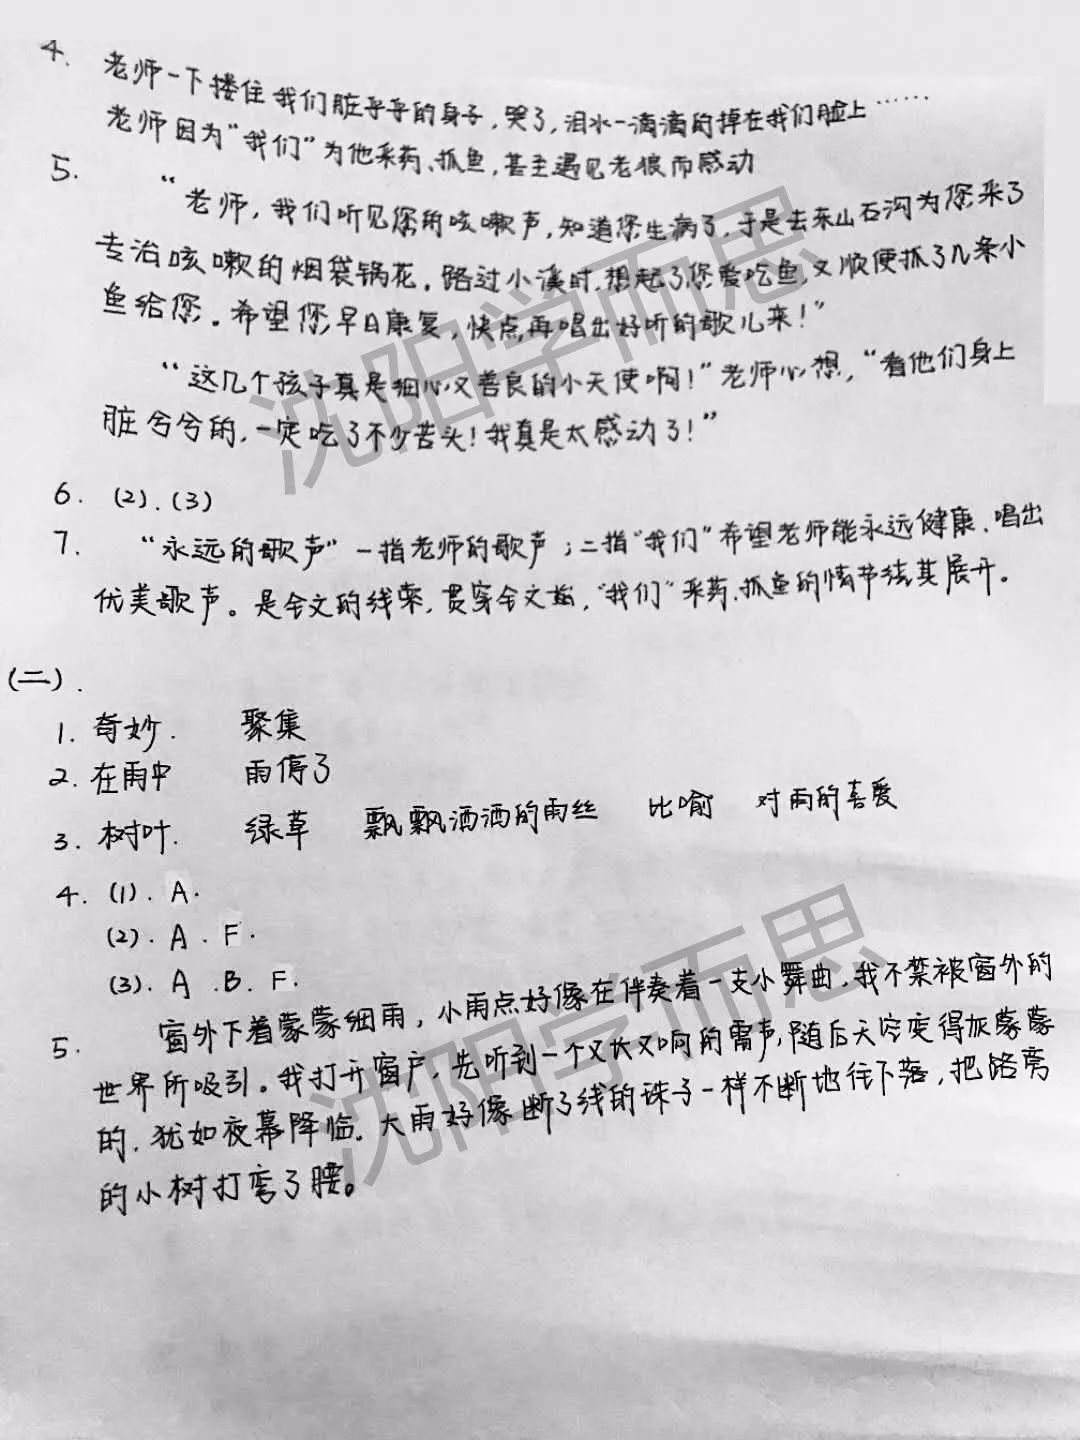 4. 老师一下搂住我们脏乎乎的身子,哭了,泪水一滴滴的掉在我们脸上……
老师因为“我们”为他采药、抓鱼,甚至遇见老狼而感动
5. “老师,我们听见您的咳嗽声,知道您生病了,于是去东山石沟为您采了
专治咳嗽的烟袋锅花。路过小溪时,想起了您爱吃鱼,又顺便抓了几条小
鱼给您。希望您早日康复,快点再唱出好听的歌儿来!”
“这几个孩子真是细心又善良的小天使啊!”老师心想,“看他们身上
脏兮兮的,一定吃了不少苦头!我真是太感动了!”
6. (2).(3)
7. “永远的歌声”一指老师的歌声;二指“我们”希望老师能永远健康、唱出
优美歌声。是全文的线索,贯穿全文始,“我们”采药、抓鱼的情节绕其展开。
(二).
1. 奇妙. 聚集
2. 在雨中 雨停了
3. 树叶. 绿草 飘飘洒洒的雨丝 比喻 对雨的喜爱
4. (1). A.
(2). A . F.
(3). A .B. F.
5. 窗外下着蒙蒙细雨,小雨点好像在伴奏着一支小舞曲,我不禁被窗外的
世界所吸引。我打开窗户,先听到一个又长又响的雷声,随后天空变得灰蒙蒙
的,犹如夜幕降临。大雨好像断了线的珠子一样不断地往下落,把路旁
的小树打弯了腰。
沈阳学而思
沈阳学而思